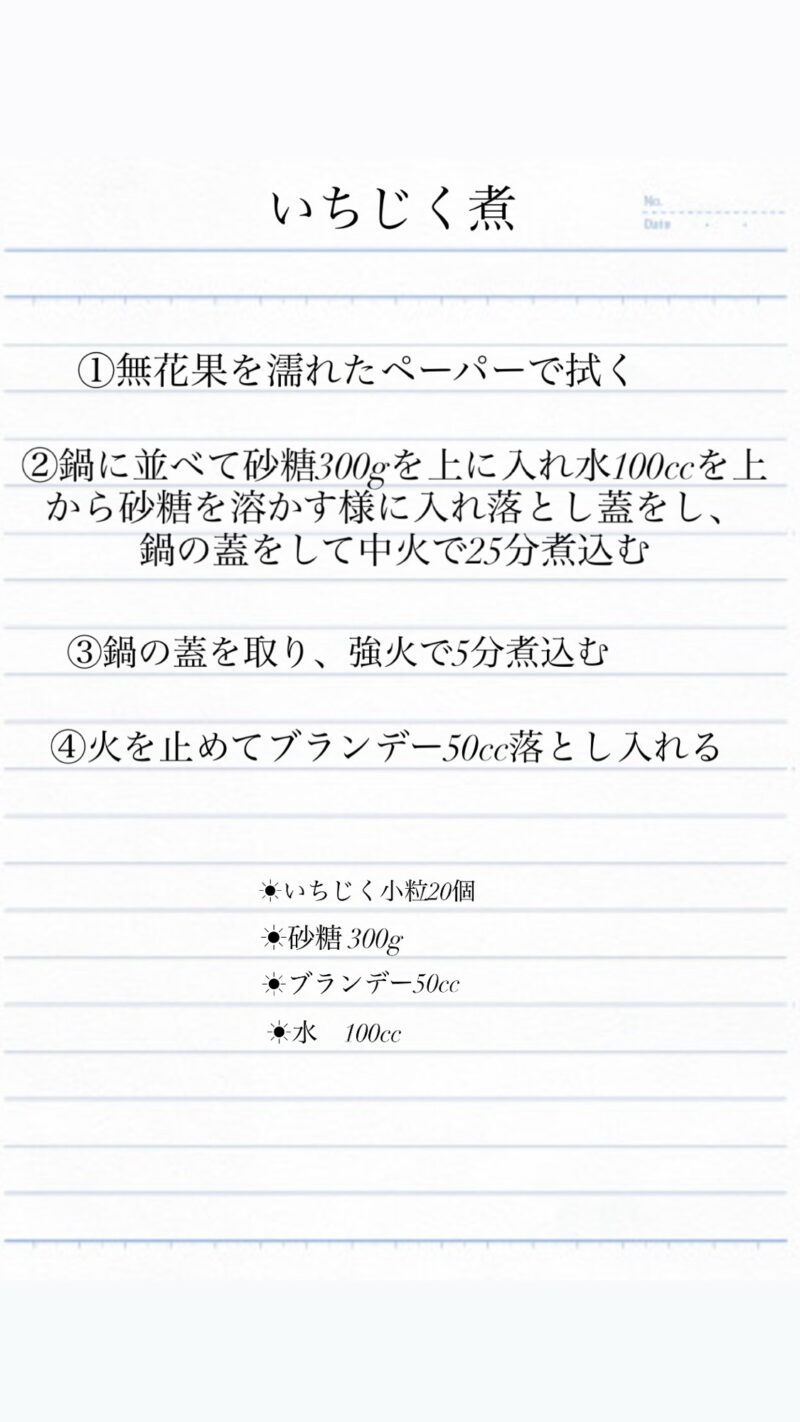 いちじく煮
No.
Date
①無花果を濡れたペーパーで拭く
②鍋に並べて砂糖300gを上に入れ水100ccを上
から砂糖を溶かす様に入れ落とし蓋をし、
鍋の蓋をして中火で25分煮込む
③鍋の蓋を取り、強火で5分煮込む
④火を止めてブランデー50cc落とし入れる
☀いちじく小粒20個
☀砂糖 300g
☀ブランデー50cc
☀水　100cc